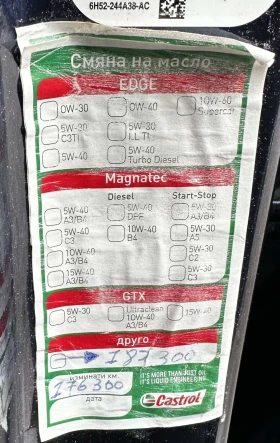 6H52-244A38-AC
Смяна на масло
EDGE
0W-30
0W-40
10W-60
Supercar
5W-30
C3TI
5W-30
LL TI
5W-40
5W-40
Turbo Diesel
Magnatec
Diesel
Start-Stop
5W-40
A3/B4
5W-40
DPF
5W-30
A3/B4
5W-40
C3
10W-40
B4
5W-30
A5
10W-40
A3/B4
5W-30
C2
15W-40
A3/B4
5W-30
C3
GTX
5W-30
C3
Ultraclean
10W-40
A3/B4
15W-40
друго
187 300
изминати км.
176300
дата
IT'S MORE THAN JUST OIL.
IT'S LIQUID ENGINEERING.
Castrol